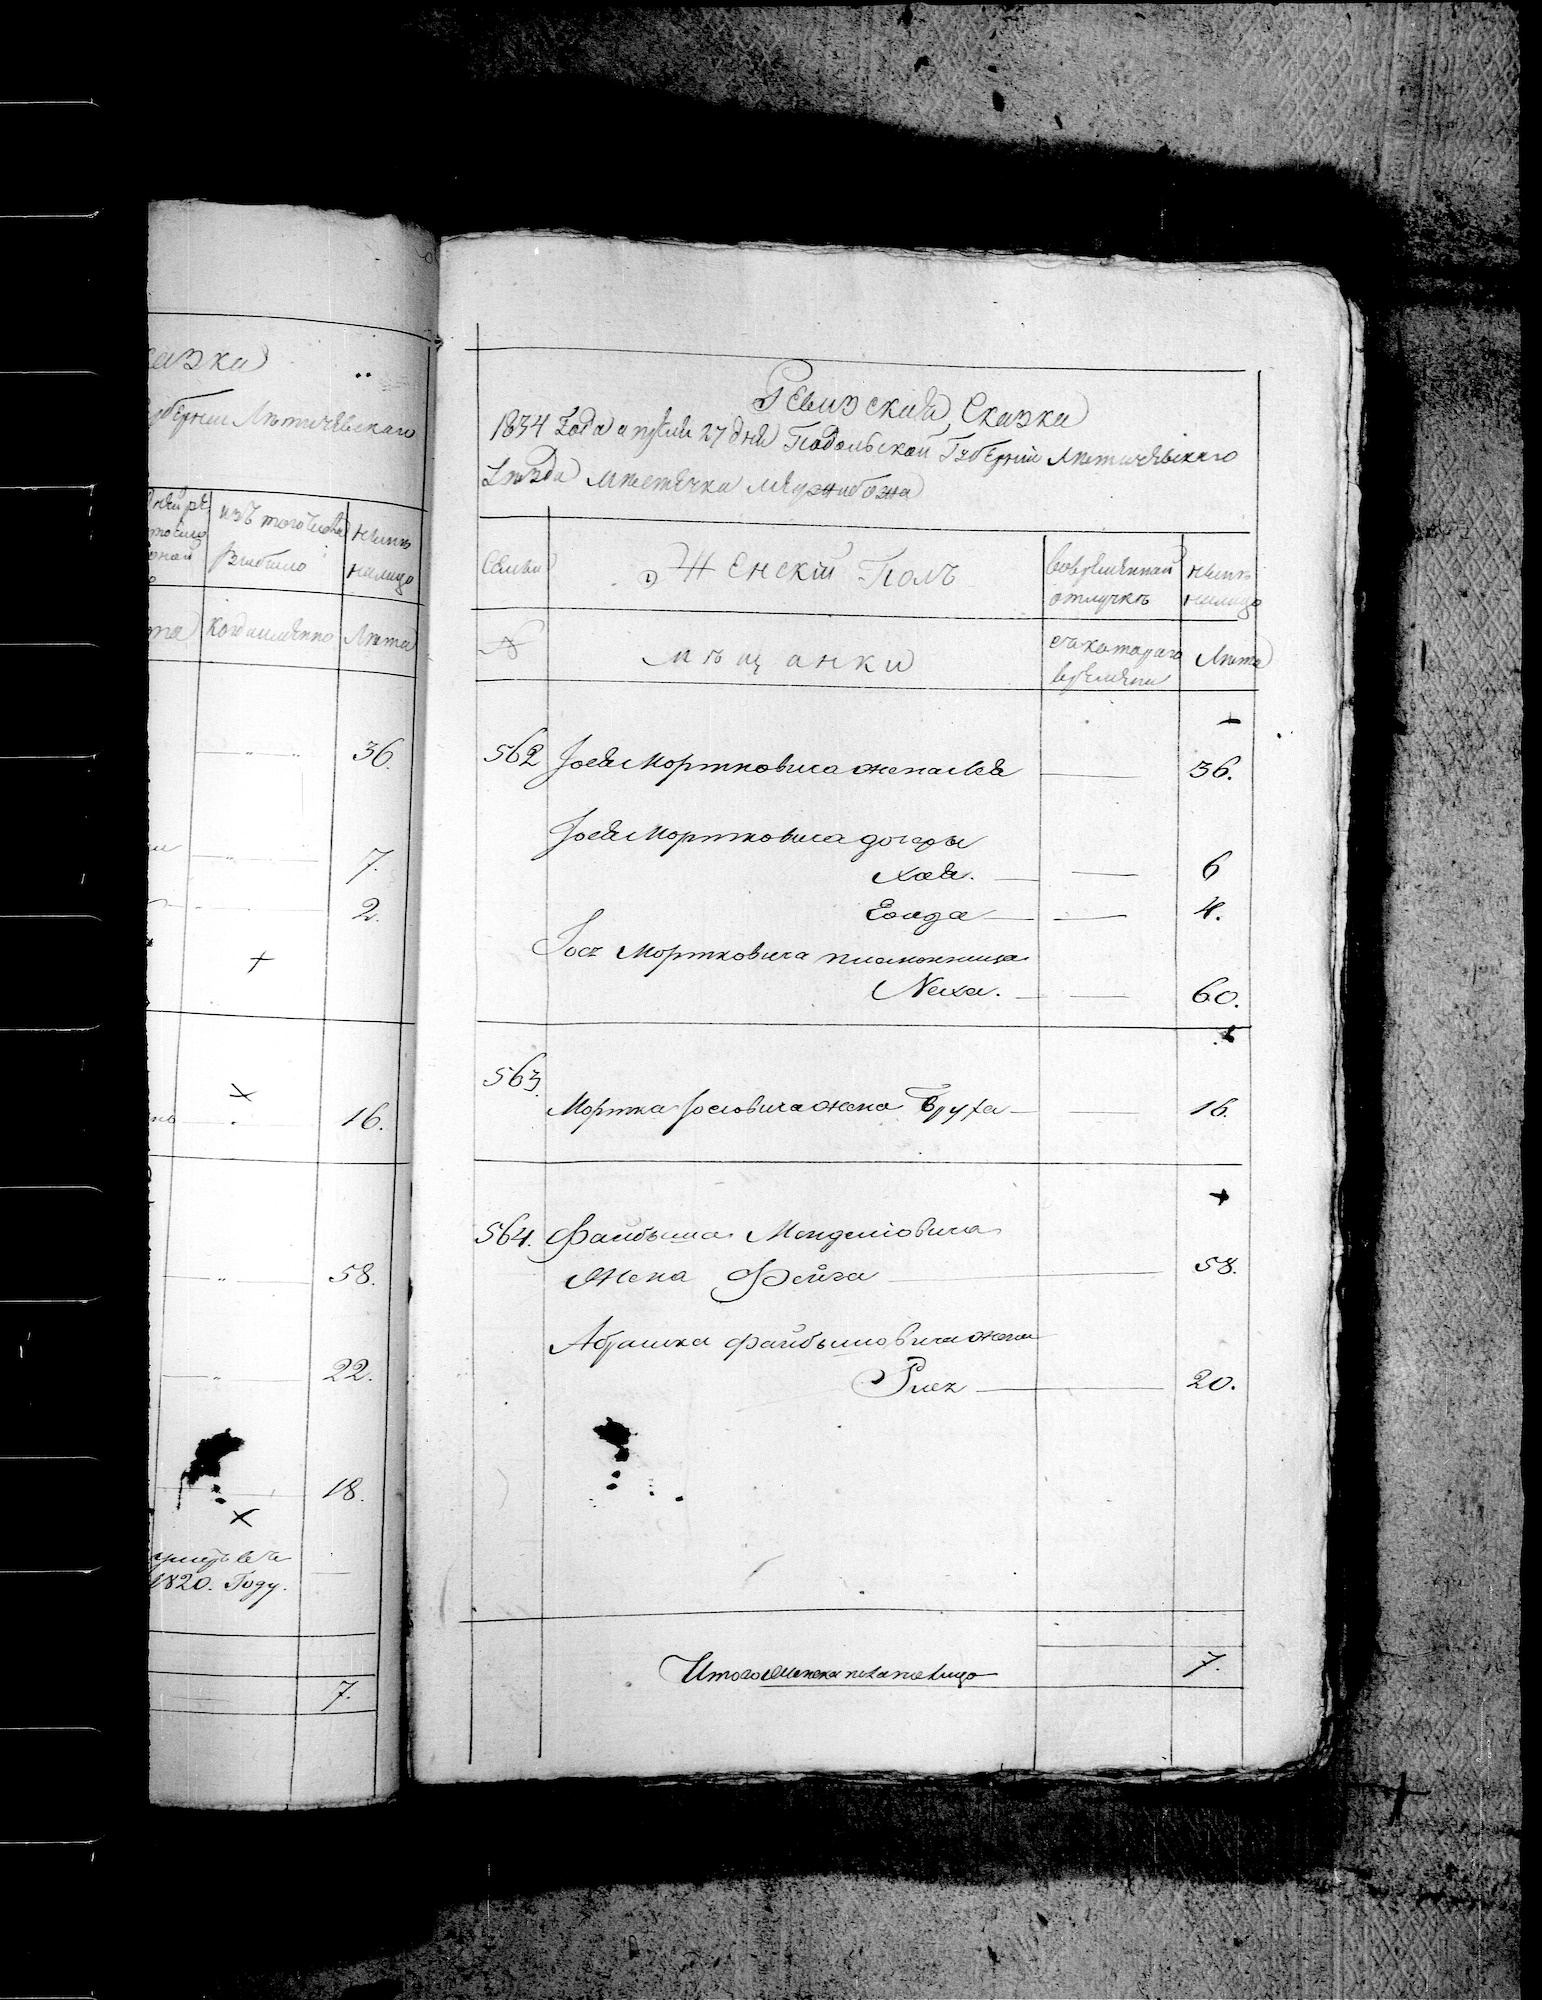 азка
Губерніи Летичевскаго
изъ того числа
выбыло
ныне
налицо
та
когда имянно
Лета
36.
7.
2.
16.
58.
22.
18.
умеръ въ
1820. Году.
7.
Ревизская Сказка
1834 Года апреля 27 дня Подольской Губерніи Летичевскаго
Уезда местечка Меджибожа
Семьи
Женскій Полъ
во временной
отлучке
ныне
налицо
№
мещанки
съ котораго
времени
Лета
562 Іося Мортковича жена Лея 36.
Іося Мортковича дочеры
Хая. 6
Голда 4.
Іося Мортковича племенница
Неха. 60.
563.
Мортка Іосіовича жена Бруха 16.
564. Файбыша Менделіовича
Жена Фейга 58.
Абрашка Файбышовича жена
20.
Итого женска пола налицо 7.